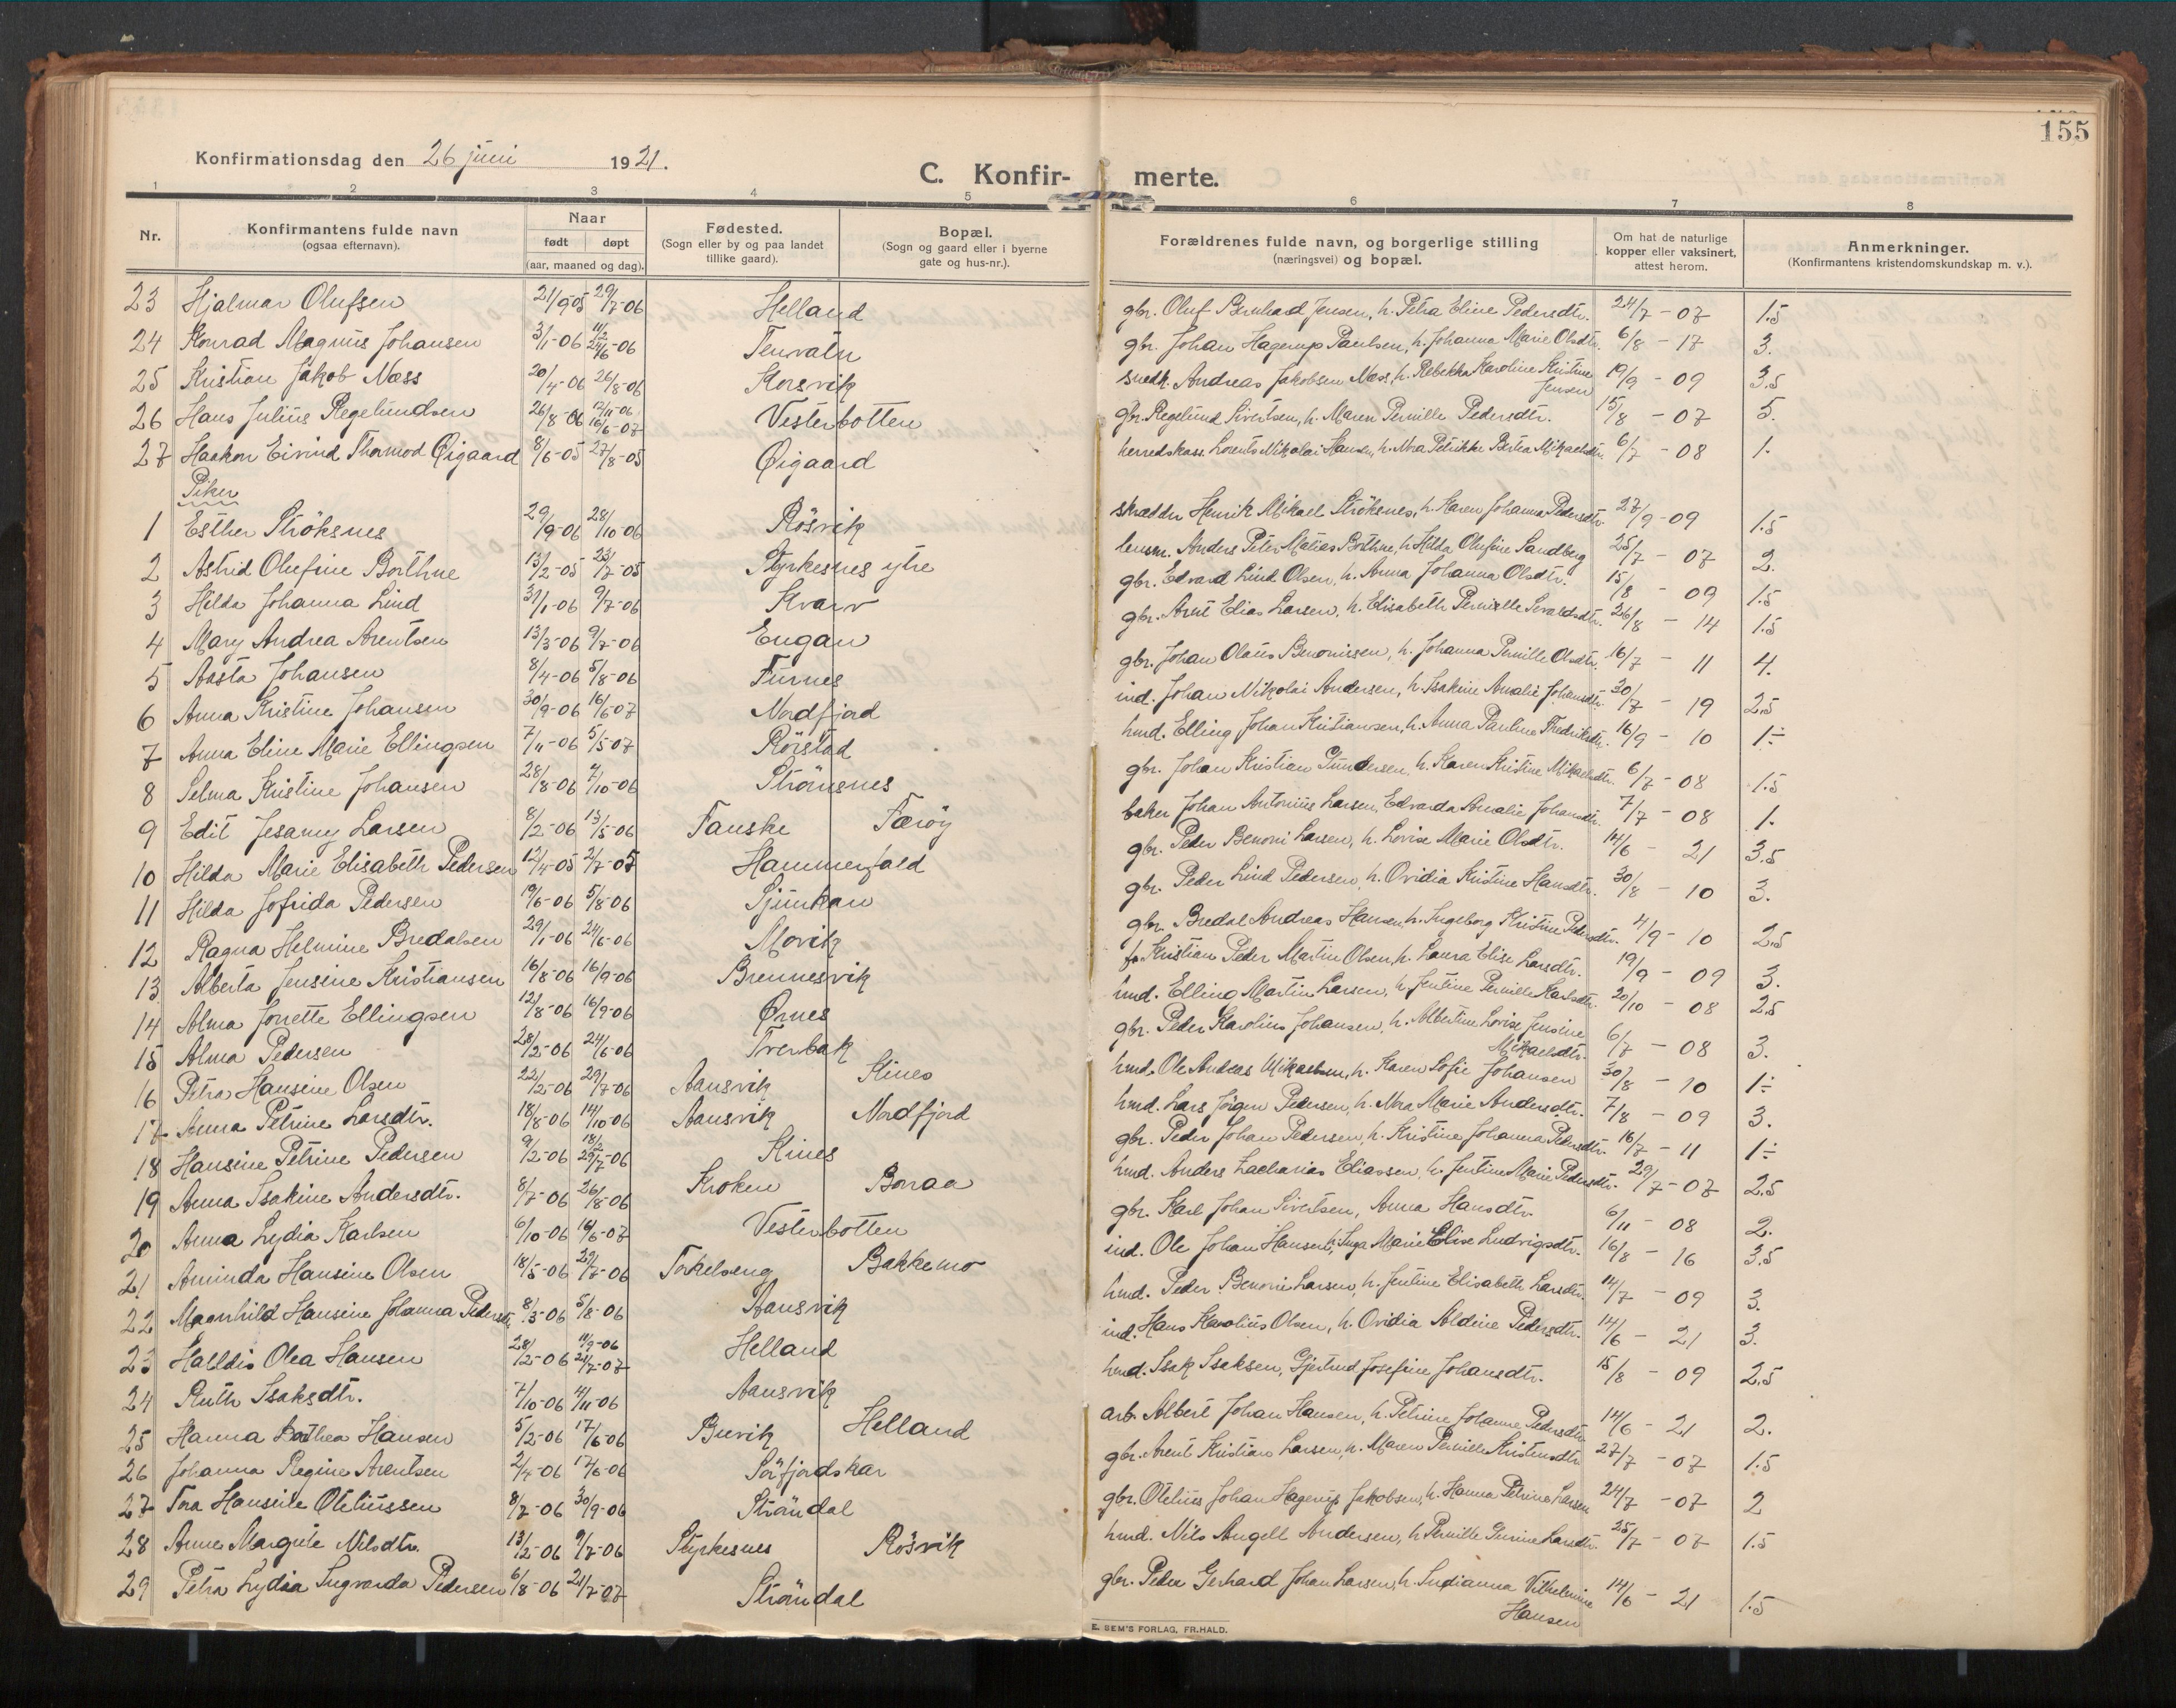 155
Konfirmationsdag den 26 juni 1921.
C. Konfir- merte.
1 2 3 4 5 6 7 8
Nr. Konfirmantens fulde navn (ogsaa efternavn). Naar født døpt (aar, maaned og dag). Fødested. (Sogn eller by og paa landet tillike gaard). Bopæl. (Sogn og gaard eller i byerne gate og hus-nr.). Forældrenes fulde navn, og borgerlige stilling (næringsvei) og bopæl. Om hat de naturlige kopper eller vaksinert, attest herom. Anmerkninger. (Konfirmantens kristendomskundskap m. v.).
23 Hjalmar Olufsen 21/9-05 29/7-06 Helland gbr. Oluf Bernhard Jensen, h. Petra Eline Pedersdtr. 24/7 - 07 1.5
24 Konrad Magnus Johansen 3/1-06 11/2 24/6-06 Tenvatn gbr. Johan Hagerup Paulsen, h. Johanna Marie Olsdtr. 6/8 - 17 3.
25 Kristian Jakob Næss 20/4-06 26/8-06 Korsvik snedk. Andreas Jakobsen Næss, h. Rebekka Karoline Kristine Jensen 19/9 - 09 3.5
26 Hans Julius Regelundsen 26/8-06 12/11-06 16/6-07 Vesterbotten gbr. Regelund Sivertsen, h. Maren Pernille Pedersdtr. 15/8 - 07 5.
27 Haakon Eivind Thormod Øigaard 8/6-05 27/8-05 Øigaard herredskass. Lorents Nikolai Hansen, h. Nora Petrikke Bertea Mikaelsdtr. 6/7 - 08 1.
Piker
1 Esther Ströksnes 29/9-06 28/10-06 Rösvik skrædder Henrik Mikael Ströksnes, h. Karen Johanna Pedersdtr. 27/9-09 1.5
2 Astrid Olufine Borthne 13/2-05 23/7-05 Styrkesnes ytre lensm. Anders Peter Matias Borthne, h. Hilda Olufine Sandberg 25/7 - 07 2.
3 Hilda Johanna Lind 31/1-06 9/7-06 Kvarv gbr. Edvard Lind Olsen, h. Anna Johanna Olsdtr. 15/8 - 09 1.5
4 Mary Andrea Arentsen 13/3-06 9/7-06 Engan gbr. Arnt Elias Larsen, h. Elisabeth Pernille Sivaldsdtr. 26/8 - 14 1.5
5 Aasta Johansen 8/4-06 5/8-06 Furnes gbr. Johan Olaus Benonisen, h. Johanna Pernille Olsdtr. 16/7 - 11 4.
6 Anna Kristine Johansen 30/9-06 16/6-07 Nordfjord ind. Johan Nikolai Andersen, h. Isakine Amalie Johansdtr. 30/7 - 19 2.5
7 Anna Eline Marie Ellingsen 7/11-06 5/5-07 Rörstad hmd. Elling Johan Kristiansen, h. Anna Pauline Fredriksdtr. 16/9 - 10 1÷
8 Selma Kristine Johansen 28/8-06 7/10-06 Strömsnes gbr. Johan Kristian Gundersen, h. Karen Kristine Mikaelsdtr. 6/7 - 08 1.5
9 Edit Jesamy Larsen 8/2-06 13/5-06 Fauske Færöy baker Johan Antonius Larsen, Edvarda Amalie Johansdtr. 7/7 - 08 1.
10 Hilda Marie Elisabeth Pedersen 12/4-05 2/7-05 Hammerfald gbr. Peder Benoni Larsen, h. Lovise Marie Olsdtr. 14/6 - 21 3.5
11 Hilda Jofrida Pedersen 19/6-06 5/8-06 Sjunkan gbr. Peder Lind Pedersen, h. Ovidia Kristine Hansdtr. 30/8 - 10 3.
12 Ragna Helmine Bredalsen 29/1-06 24/6-06 Movik gbr. Bredal Andreas Hansen, h. Ingeborg Kristine Pedersdtr. 4/9 - 10 2.5
13 Alberta Jensine Kristiansen 16/8-06 16/9-06 Brennesvik f. Kristian Peder Martin Olsen, h. Laura Elise Larsdtr. 19/9 - 09 3.
14 Alma Jonette Ellingsen 12/8-06 16/9-06 Ørnes hmd. Elling Martin Larsen, h. Jentine Pernille Karlsdtr. 20/10 - 08 2.5
15 Alma Pedersen 28/2-06 24/6-06 Tverbak gbr. Peder Karolius Johansen, h. Albertine Lovise Jensine Mikaelsdtr. 6/7 - 08 3.
16 Petra Hansine Olsen 22/2-06 29/7-06 Aansvik Kines hmd. Ole Andreas Mikaelsen, h. Karen Sofie Johansen 30/8 - 10 1÷
17 Anna Petrine Larsdtr. 18/8-06 14/10-06 Aansvik Nordfjord hmd. Lars Jörgen Pedersen, h. Nora Marie Andersdtr. 7/8 - 09 3.
18 Hansine Petrine Pedersen 9/2-06 18/2 29/7-06 Kines gbr. Peder Johan Pedersen, h. Kristine Johanna Pedersdtr. 16/7 - 11 1÷
19 Anna Isakine Andersdtr. 8/7-06 26/8-06 Kroken Bonaa hmd. Anders Zacharias Eliassen, h. Jentine Marie Pedersdtr. 29/7-07 2.5
20 Anna Lydia Karlsen 6/10-06 16/6-07 Vesterbotten gbr. Karl Johan Sivertsen, Anna Hansdtr. 6/11 - 08 2.
21 Aminda Hansine Olsen 18/5-06 22/7-06 Torkelseng Bakkemo ind. Ole Johan Hansen, h. Inga Marie Elise Ludvigsdtr. 16/8 - 16 3.5
22 Magnhild Hansine Johanna Pedersdtr. 8/3-06 5/8-06 Aansvik hmd. Peder Benoni Larsen, h. Jentine Elisabeth Larsdtr. 14/7 - 09 3.
23 Halldis Olea Hansen 28/2-06 11/9-06 21/7-07 Helland ind. Hans Karolius Olsen, h. Ovidia Aldine Pedersdtr. 14/6 - 21 3.
24 Ruth Isaksdtr. 7/10-06 4/11-06 Aansvik hmd. Isak Isaksen, Gjertrud Josefine Johansdtr. 15/8 - 09 2.5
25 Hanna Bothea Hansen 5/2-06 17/6-06 Buvik Helland arb. Albert Johan Hansen, h. Petrine Johanne Pedersdtr. 14/6 - 21 2.
26 Johanna Regine Arentsen 2/4-06 17/6-06 Sörfjordskar gbr. Arent Kristian Larsen, h. Maren Pernille Kristensdtr 27/7 - 07 1.5
27 Tora Hansine Oteliussen 8/7-06 30/9-06 Ströndal gbr. Otelius Johan Hagerup Jakobsen, h. Hanna Petrine Larsen 24/7 - 07 2
28 Anne Margrete Nilsdtr. 13/2-06 9/7-06 Styrkesnes Rösvik hmd. Nils Angell Andersen, h. Pernille Gurine Larsdtr. 25/7 - 07 1.5
29 Petra Lydia Ingvarda Pedersen 6/8-06 21/7-07 Ströndal gbr. Peder Gerhard Johan Larsen, h. Indianna Vilhelmine Hansen 14/6 - 21 1.5
E. SEM'S FORLAG, FR.HALD.